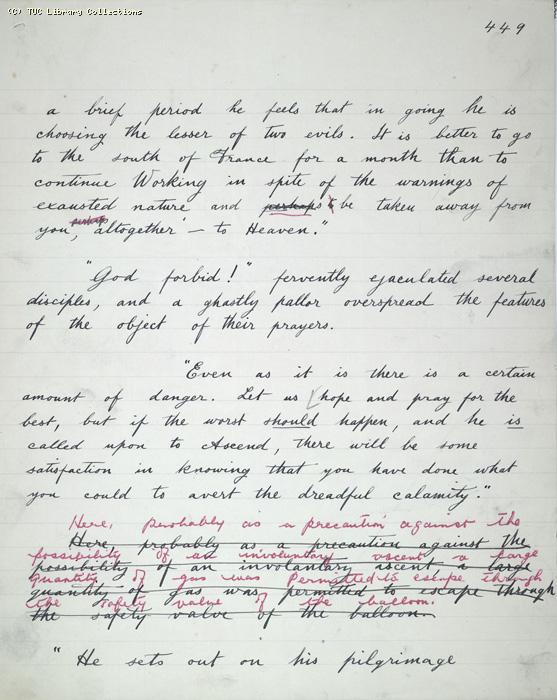 (C) TUC Library Collections
449
a brief period he feels that in going he is
choosing the lesser of two evils. It is better to go
to the south of France for a month than to
continue Working in spite of the warnings of
exausted nature and perhaps be taken away from
you, perhaps altogether – to Heaven."
"God forbid!" fervently ejaculated several
disciples, and a ghastly pallor overspread the features
of the object of their prayers.
"Even as it is there is a certain
amount of danger. Let us hope and pray for the
best, but if the worst should happen, and he is
called upon to Ascend, there will be some
satisfaction in knowing that you have done what
you could to avert the dreadful calamity."
Here, probably as a precaution against the
Here, probably as a precaution against the
possibility of an involuntary ascent a large
possibility of an involantary ascent a large
quantity of gas was Permitted to escape through
quantity of gas was permitted to escape through
the safety valve of the balloon.
the safety valve of the balloon.
"He sets out on his pilgrimage